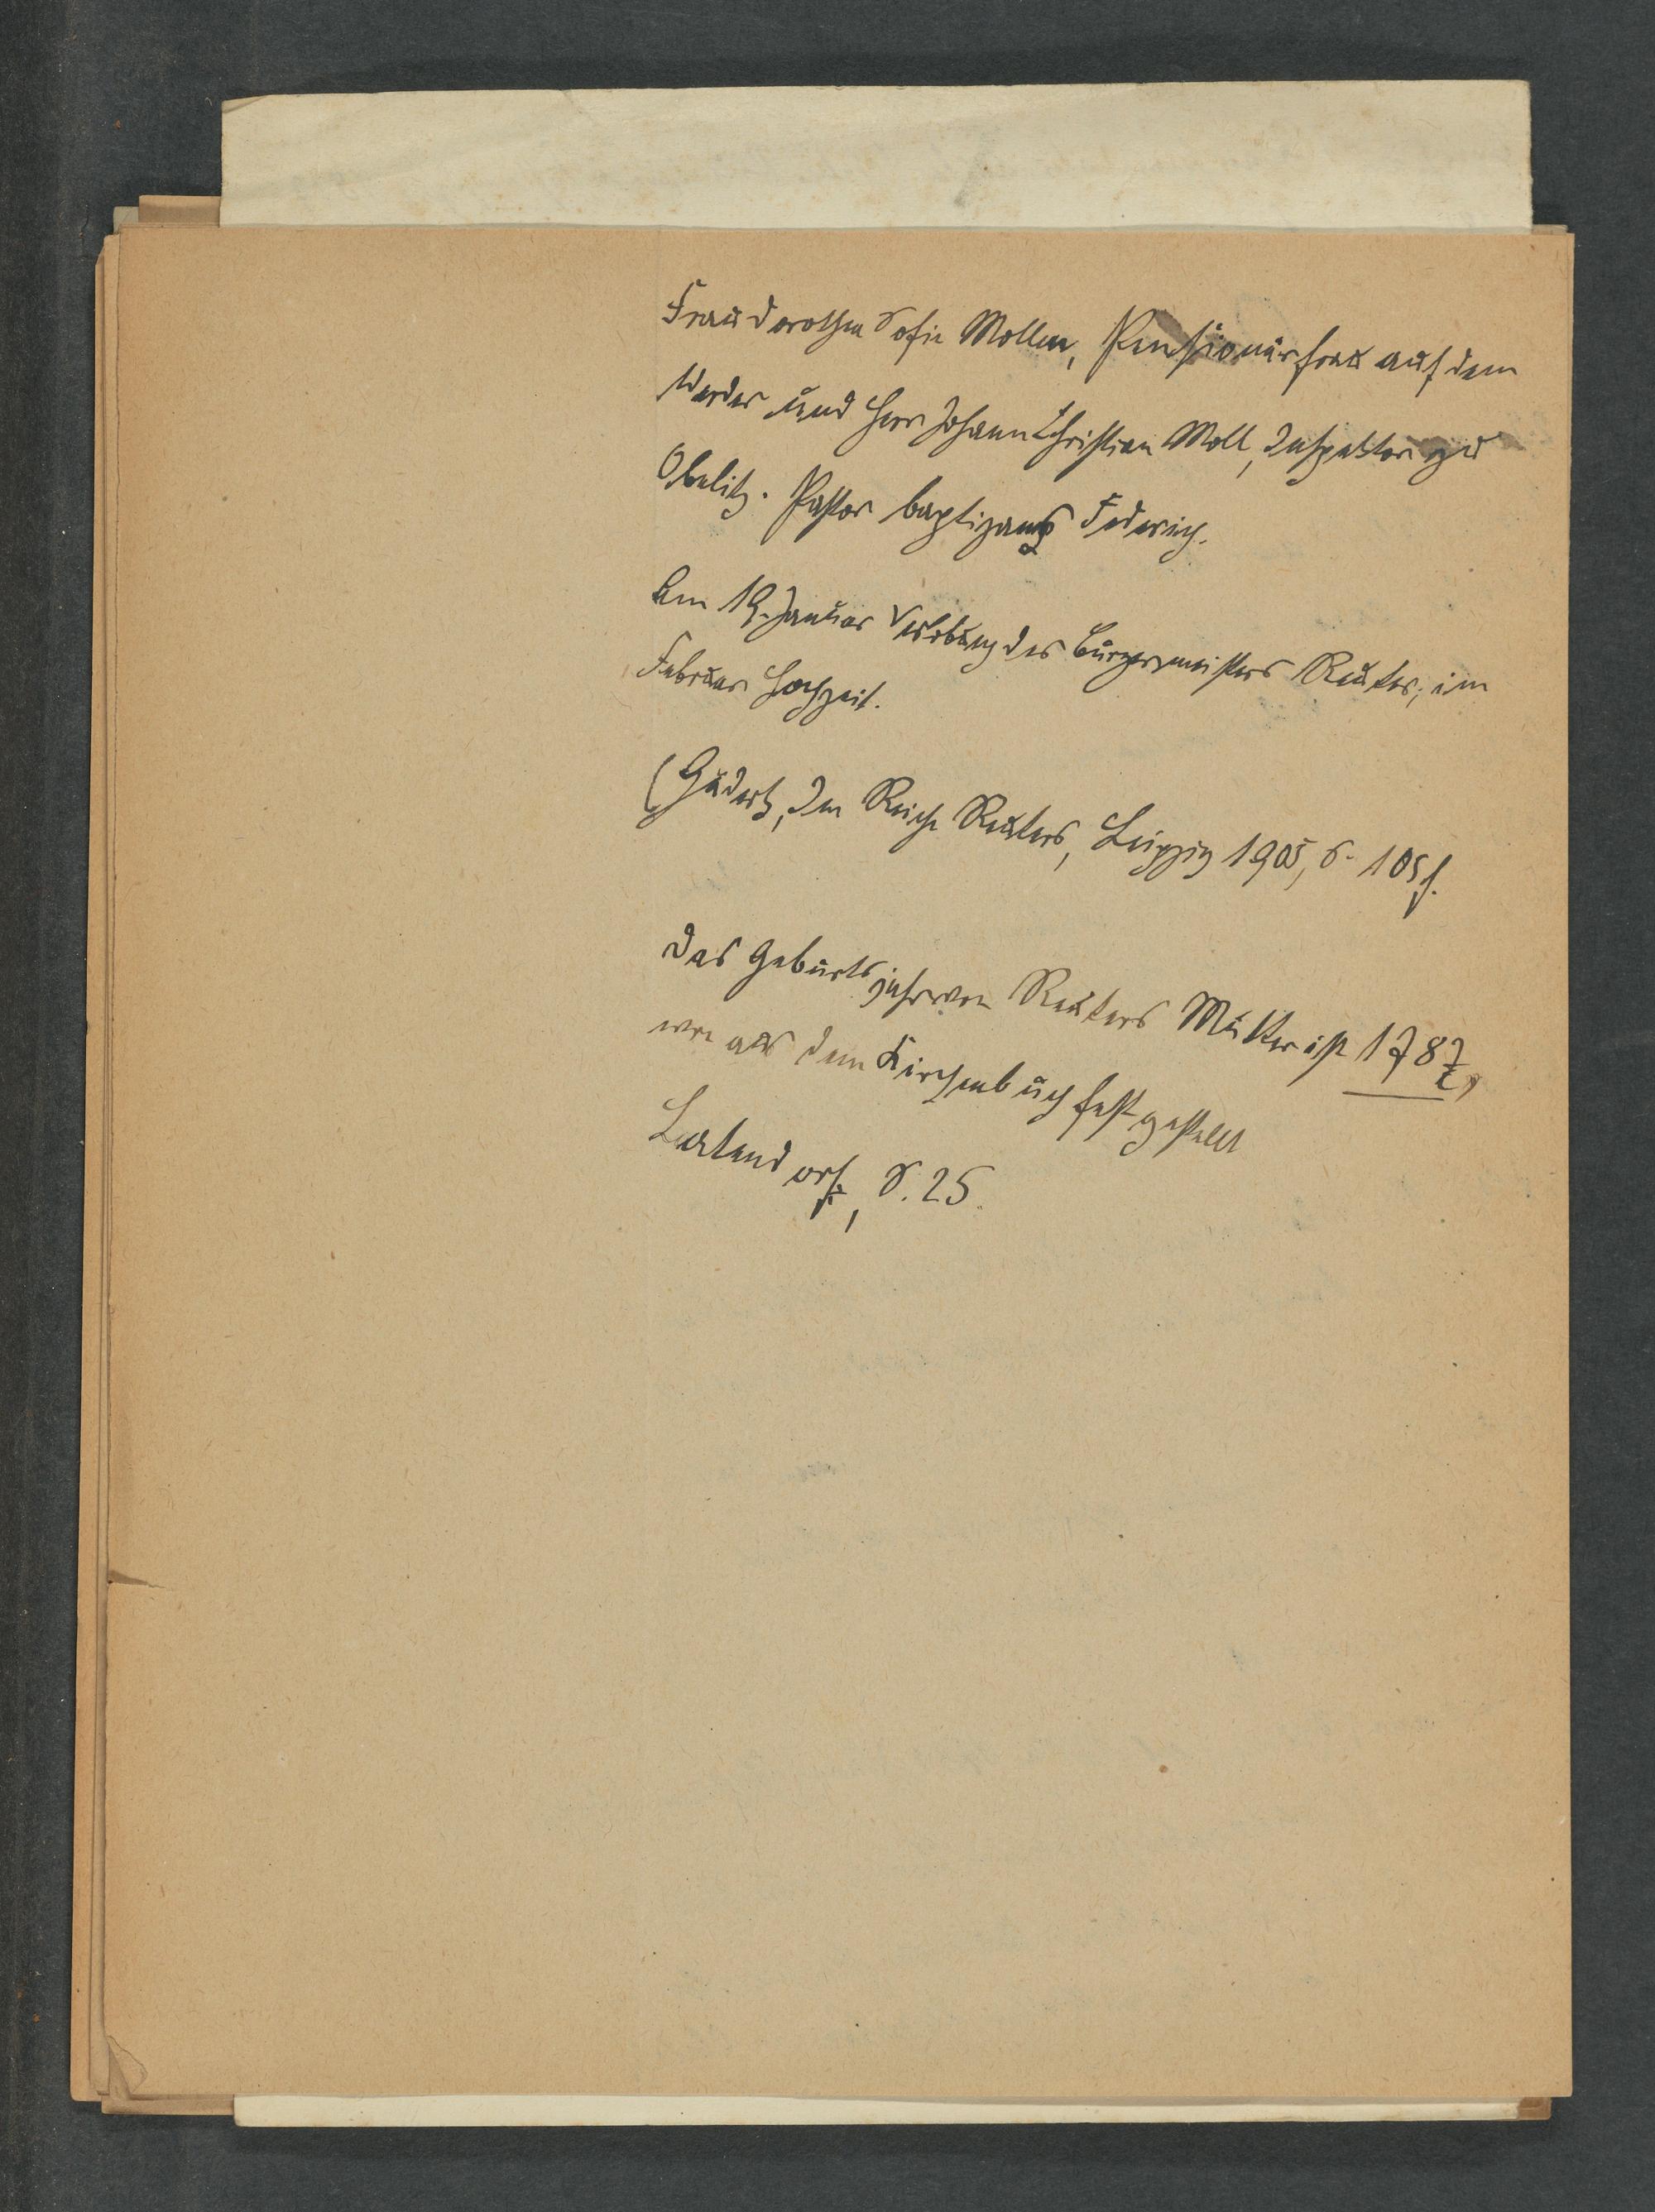 Frau Dorothea Sofie Mollen, Pensionärsfrau auf dem
Werder und Herr Johann Christian Moll, Inspektor zu
Obelitz. Pastor baptizans Federich.
Am 19. Januar Verlobung des Bürgermeisters Reuter, im
Februar Hochzeit.
(Gädertz, Im Reiche Reuters, Leipzig 1905, S. 105 f.
Das Geburtsjahr von Reuters Mutter ist 1787,
wie aus dem Kirchenbuch festgestellt
Latendorf, S. 25.